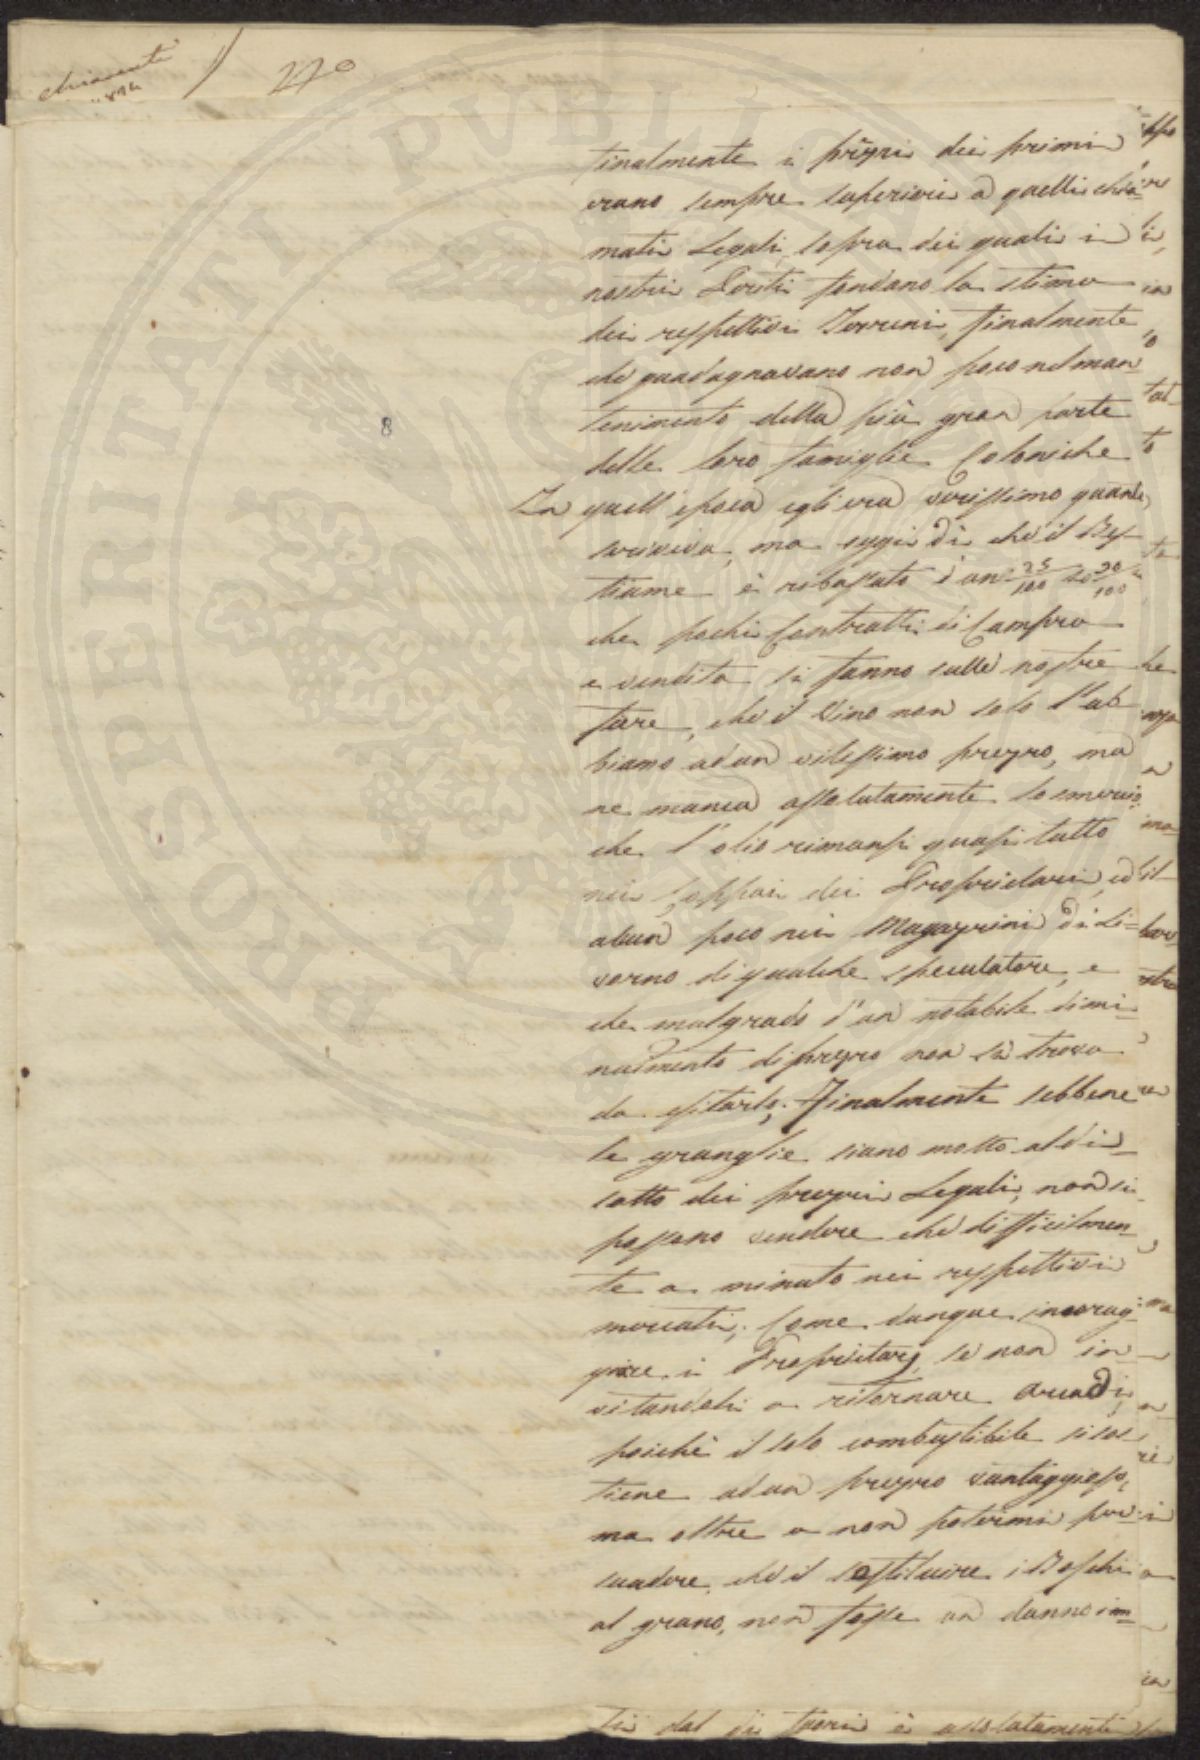 270
8
tinalmente i prezzi dei primi
erano sempre superiori a quelli chia=
mati Legali, sopra dei quali i
nostri Periti fondano la stima
dei respettivi Terreni, finalmente
che guadagnavano non poco nel man=
tenimento della più gran parte
delle loro famiglie Coloniche
In quell'epoca egli era verissimo quanto
scriveva, ma oggi dì che il Bes=
tiame è ribassato d'un 25/100 30/100
che pochi Contratti di Compra
e vendita si fanno sulle nostre
fiere, che il Vino non solo l'ab
biamo ad un vilissimo prezzo, ma
ne manca assolutamente lo smercio,
che l'olio rimansi quasi tutto
nei Coppai dei Proprietari, ed
alcun poco nei Magazzini di Li=
vorno di qualche speculatore, e
che malgrado d'un notabile dimi=
nuimento di prezzo non si trova
da esitarlo; Finalmente sebbene
le granglie siano molto al di
sotto dei prezzi Legali, non si
possono vendere che difficilmen=
te a minuto nei respettivi
mercati; Come dunque incorag=
gire i Proprietarj, se non in=
vitandoli a ritornare
poiché il solo combustibile si sos=
tiene ad un prezzo vantaggioso,
ma oltre a non potermi per=
suadere, che il sostituire i Boschi
al grano, non fosse un danno im=
tri dal di fuori è assolutamente